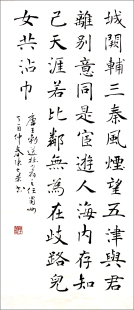 城闕輔三秦風煙望五津與君
離別意同是宦遊人海內存知
己天涯若比鄰無為在歧路兒
女共沾巾
唐王勃送杜少府之任蜀州
丁酉仲春